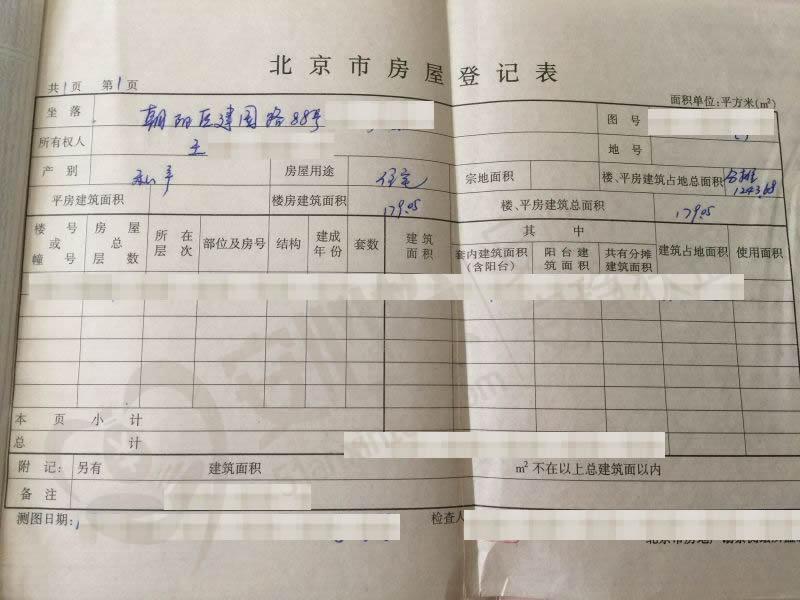 北京市房屋登记表
共1页 第1页
面积单位:平方米(m²)
坐落 朝阳区建国路88号 图号
所有权人 王 地号
产别 私产 房屋用途 住宅 宗地面积 楼、平房建筑占地总面积 分摊 1243.68
平房建筑面积 楼房建筑面积 179.05 楼、平房建筑总面积 179.05
楼号或幢号 房屋总层数 所在层次 部位及房号 结构 建成年份 套数 建筑面积 其中 套内建筑面积(含阳台) 阳台建筑面积 共有分摊建筑面积 建筑占地面积 使用面积
本页小计
总计
附记: 另有 建筑面积 m² 不在以上总建筑面以内
备注
测图日期: 检查人